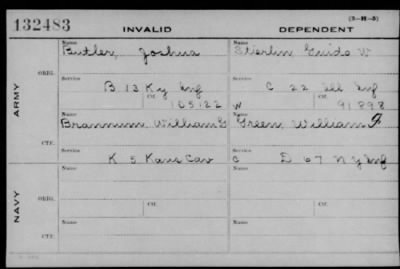 132483
INVALID
DEPENDENT
(3-H-5)
ARMY
ORIG.
Name
Butler, Joshua
Name
Stierlin Guido W
Service
B 13 Ky Inf
Ctf.
165122
Service
C 22 Ill Inf
W
Ctf.
91898
CTF.
Name
Brannum, William G
Name
Green, William F
Service
K 5 Kans Cav
Service
C
D 67 N Y Inf
NAVY
ORIG.
Name
Ctf.
Name
Ctf.
CTF.
Name
Name